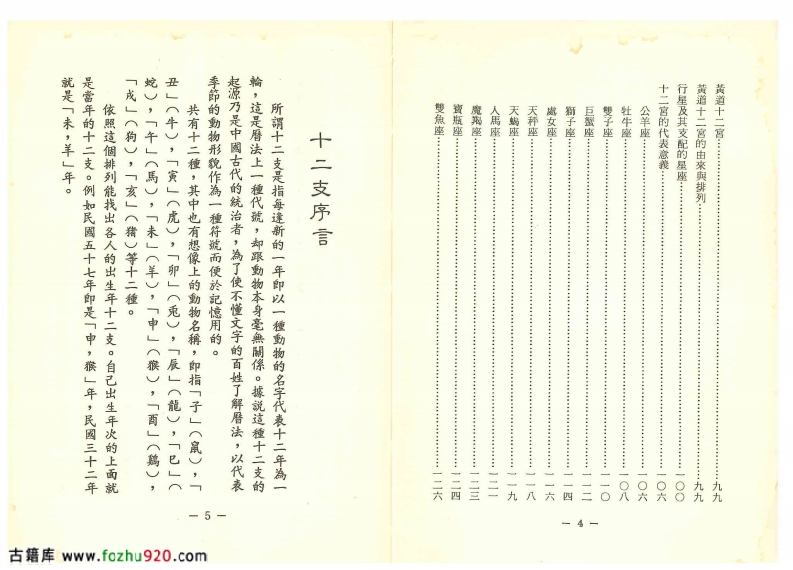 黃道十二宮……九九
黃道十二宮的由來與排列……九九
行星及其支配的星座……一〇〇
十二宮的代表意義……一〇六
公羊座……一〇六
牡牛座……一〇八
雙子座……一一〇
巨蟹座……一一二
獅子座……一一四
處女座……一一六
天秤座……一一八
天蝎座……一一九
人馬座……一二一
魔羯座……一二三
寶瓶座……一二四
雙魚座……一二六
— 4 —
十二支序言
所謂十二支是指每逢新的一年即以一種動物的名字代表十二年為一
輪，這是曆法上一種代號，却跟動物本身毫無關係。據説這種十二支的
起源乃是中國古代的統治者，為了使不懂文字的百姓了解曆法，以代表
季節的動物形貌作為一種符號而便於記憶用的。
共有十二種，其中也有想像上的動物名稱，即指「子」（鼠），「
丑」（牛），「寅」（虎），「卯」（兎），「辰」（龍），「巳」（
蛇），「午」（馬），「未」（羊），「申」（猴），「酉」（鷄），
「戌」（狗），「亥」（猪）等十二種。
依照這個排列能找出各人的出生年十二支。自己出生年次的上面就
是當年的十二支。例如民國五十七年即是「申，猴」年，民國三十二年
就是「未，羊」年。
— 5 —
古籍库 www.fozhu920.com